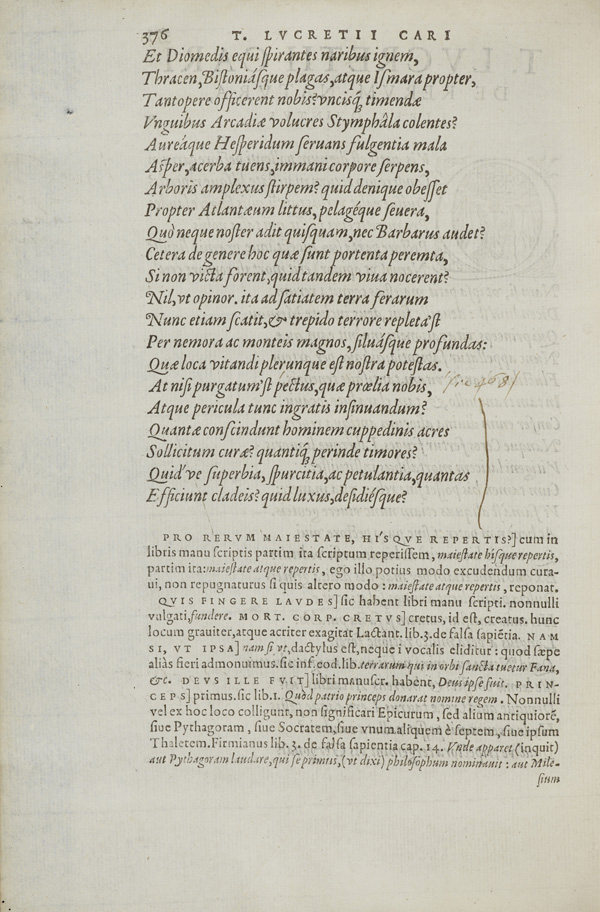 376 T. LVCRETII CARI
Et Diomedis equi spirantes naribus ignem,
Thracen, Bistoniásque plagas, atque Ismara propter,
Tantopere officerent nobis? vncisq́; timendæ
Vnguibus Arcadiæ volucres Stymphâla colentes?
Aureáque Hesperidum seruans fulgentia mala
Asper, acerba tuens, immani corpore serpens,
Arboris amplexus stirpem? quid denique obesset
Propter Atlantæum littus, pelagéque seuera,
Quò neque noster adit quisquam, nec Barbarus audet?
Cetera de genere hoc quæ sunt portenta peremta,
Si non victa forent, quid tandem viua nocerent?
Nil, vt opinor. ita ad satiatem terra ferarum
Nunc etiam scatit, & trepido terrore repleta'st
Per nemora ac monteis magnos, siluásque profundas:
Quæ loca vitandi plerunque est nostra potestas.
At nisi purgatum'st pectus, quæ prœlia nobis,
Atque pericula tunc ingratis insinuandum?
Quantæ conscindunt hominem cuppedinis acres
Sollicitum curæ? quantiq́; perinde timores?
Quid've superbia, spurcitia, ac petulantia, quantas
Efficiunt cladeis? quid luxus, desidiésque?
PRO RERVM MAIESTATE, HI'SQVE REPERTIS?] cum in
libris manu scriptis partim ita scriptum reperissem, maiestate hísque repertis,
partim ita: maiestate atque repertis, ego illo potius modo excudendum cura-
ui, non repugnaturus si quis altero modo: maiestate atque repertis, reponat.
QVIS FINGERE LAVDES] sic habent libri manu scripti. nonnulli
vulgati, fundere. MORT. CORP. CRETVS] cretus, id est, creatus. hunc
locum grauiter, atque acriter exagitat Lactant. lib. 3. de falsa sapiẽtia. NAM
SI, VT IPSA] nam si vt, dactylus est, neque i vocalis eliditur: quod sæpe
aliàs fieri admonuimus. sic inf. eod. lib. terrarum qui in orbi sancta tuetur Fana,
&c. DEVS ILLE FVIT] libri manuscr. habent, Deus ipse fuit. PRIN-
CEPS] primus. sic lib. 1. Quòd patrio princeps donarat nomine regem. Nonnulli
vel ex hoc loco colligunt, non significari Epicurum, sed alium antiquiorẽ,
siue Pythagoram, siue Socratem, siue vnum aliquem è septem, siue ipsum
Thaletem. Firmianus lib. 3. de falsa sapientia cap. 14. Vnde apparet (inquit)
aut Pythagoram laudare, qui se primus, (vt dixi) philosophum nominauit: aut Mile-
sium